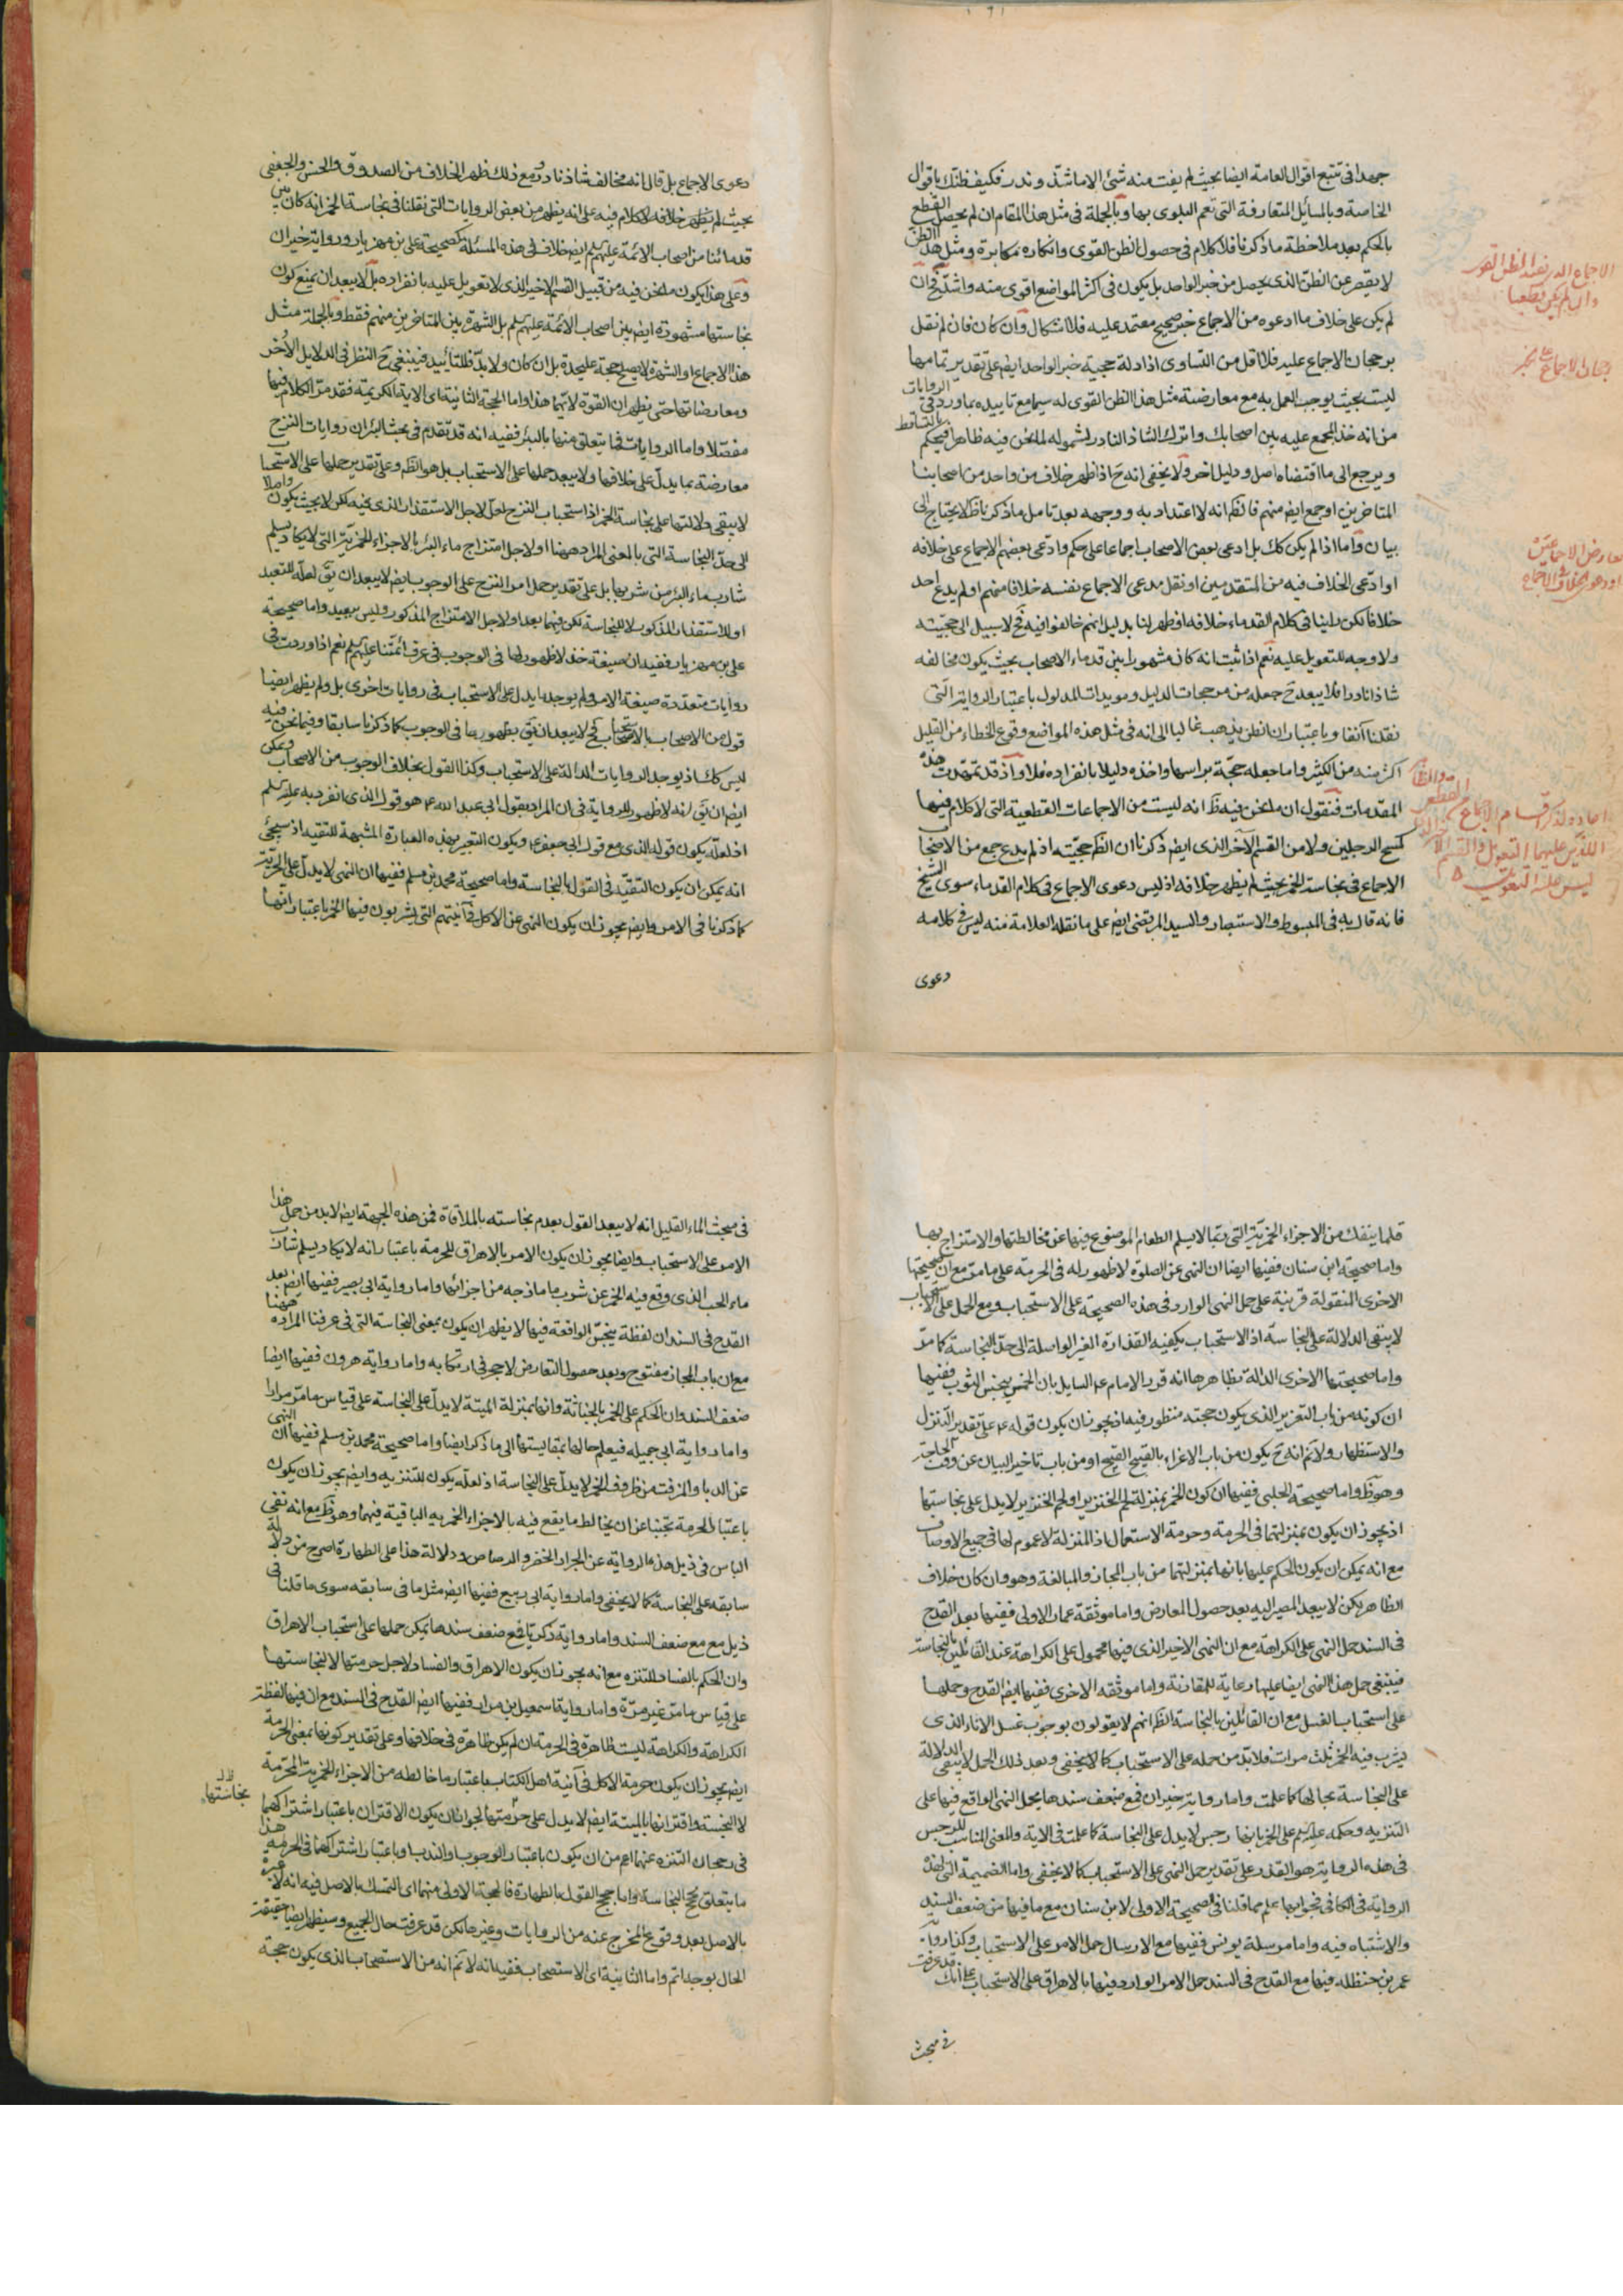 جهدا فى تتبع اقوال العامة ايضا بحيث لم يفت منه شئ الا ما شذ وندر فكيف ظنك باقوال
الخاصة وبالمسائل المتعارفة التى تعم البلوى بها وبالجملة فى مثل هذا المقام ان لم يحصل القطع
بالحكم بعد ملاحظة ما ذكرنا فلا كلام فى حصول الظن القوى وانكاره مكابرة ومثل هذا الظن
لا يقصر عن الظن الذى يحصل من خبر الواحد بل يكون فى اكثر المواضع اقوى منه واشد فح ان
لم يكن على خلاف ما ادعوه من الاجماع خبر صحيح معتمد عليه فلا اشكال وان كان فان لم نقل
برجحان الاجماع عليه فلا اقل من التساوى اذ ادلة حجية خبر الواحد ايض على تقدير تمامها
ليست بحيث يوجب العمل به مع معارضة مثل هذا الظن القوى له سيما مع تاييده بما ورد فى الروايات
من انه خذ المجمع عليه بين اصحابك واترك الشاذ النادر لشموله لما نحن فيه ظاهرا فيحكم بالتساقط
ويرجع الى ما اقتضاه اصل ودليل اخر ولا يخفى انه ح اذا ظهر خلاف من واحد من اصحابنا
المتاخرين او جمع ايض منهم فالظ انه لا اعتداد به ووجهه بعد تامل ما ذكرنا ظ لا يحتاج الى
بيان واما اذا لم يكن كك بل ادعى بعض الاصحاب اجماعا على حكم وادعى بعضهم الاجماع على خلافه
او ادعى الخلاف فيه من المتقدمين او نقل مدعى الاجماع نفسه خلافا منهم او لم يدع احد
خلافا لكن راينا فى كلام القدماء خلافه او ظهر لنا بدليل انهم خالفوا فيه فح لا سبيل الى حجيته
ولا وجه للتعويل عليه نعم اذا ثبت انه كان مشهورا بين قدماء الاصحاب بحيث يكون مخالفه
شاذا نادرا فلا يبعد ح جعله من مرجحات الدليل ومويدات المدلول باعتبار الرواية التى
نقلنا آنفا وباعتبار ان الظن يذهب غالبا الى انه فى مثل هذه المواضع وقوع الخطاء من القليل
اكثر منه من الكثير واما جعله حجة براسها واخذه دليلا بانفراده فلا واذ قد تمهدت هذه
المقدمات فنقول ان ما نحن فيه ظ انه ليست من الاجماعات القطعية التى لا كلام فيها
كمسح الرجلين ولا من القسم الآخر الذى ايض ذكرنا ان الظ حجيته اذ لم يدع جمع من الاصحاب
الاجماع فى نجاسة الخمر بحيث لم يظهر خلافه اذ ليس دعوى الاجماع فى كلام القدماء سوى الشيخ
فانه قال به فى المبسوط والاستبصار والسيد المرتضى ايض على ما نقله العلامة منه ليس فى كلامه
دعوى
دعوى الاجماع بل قال انه مخالف شاذ نادر ومع ذلك ظهر الخلاف من الصدوق والحسن والجعفى
بحيث لم يظهر خلافه لا كلام فيه على انه يظهر من بعض الروايات التى نقلنا فى نجاسة الخمر انه كان بين
قدمائنا من اصحاب الائمة عليهم السلم ايض خلاف فى هذه المسئلة كصحيحة على بن مهزيار ورواية خيران
وعلى هذا يكون ما نحن فيه من قبيل القسم الاخير الذى لا تعويل عليه بانفراده بل لا يبعد ان يمنع كون
نجاستها مشهورة ايض بين اصحاب الائمة عليهم السلم بل الشهرة بين المتاخرين منهم فقط وبالجملة مثل
هذا الاجماع او الشهرة لا يصلح حجة عليحدة بل ان كان ولا بد فللتاييد فينبغى ح النظر فى الدلايل الاخر
ومعارضاتها حتى يظهر ان القوة لايتها هذا واما الحجة الثانية اى الاية الكريمة فقد مر الكلام فيها
مفصلا واما الروايات فما يتعلق منها بالبئر ففيه انه قد تقدم فى بحث البئر ان روايات النزح
معارضة بما يدل على خلافها ولا يبعد حملها على الاستحباب بل هو الظ وعلى تقدير حملها على الاستحباب
لا يبقى دلالتها على نجاسة الخمر اذ استحباب النزح لعل لاجل الاستقذار الذى فيه لكن لا بحيث يكون واصلا
الى حد النجاسة التى بالمعنى المراد ههنا او لاجل امتزاج ماء البئر بالاجزاء الخمرية التى لا يكاد يسلم
شارب ماء البئر من شربها بل على تقدير حمل امر النزح على الوجوب ايض لا يبعد ان يق لعله للتعبد
او للاستقذار المذكور لا للنجاسة لكن فيهما بعد او لاجل الامتزاج المذكور وليس ببعيد واما صحيحة
على بن مهزيار ففيه ان صيغة خذ لا ظهور لها فى الوجوب فى عرف ائمتنا عليهم السلم نعم اذا وردت فى
روايات متعددة صيغة الامر ولم يوجد ما يدل على الاستحباب فى روايات اخرى بل ولم يظهر ايضا
قول من الاصحاب بالاستحباب فح لا يبعد ان يق بظهورها فى الوجوب كما ذكرنا سابقا وفيما نحن فيه
ليس كك اذ يوجد الروايات الدالة على الاستحباب وكذا القول بخلاف الوجوب من الاصحاب ويمكن
ايض ان يق انه لا ظهور للرواية فى ان المراد بقول ابى عبد الله ع هو قول الذى انفرد به عليه السلم
اذ لعله يكون قوله الذى مع قول ابى جعفر ع ويكون التعبير بهذه العبارة المشبهة للتقية اذ سيجئ
انه يمكن ان يكون التقية فى القول بالنجاسة واما صحيحة محمد بن مسلم ففيها ان النهى لا يدل على الحرمة
كما ذكرنا فى الامر وايض يجوز ان يكون النهى عن الاكل فى آنيتهم التى يشربون فيها الخمر باعتبار انها
قلما ينفك من الاجزاء الخمرية التى ربما لا يسلم الطعام الموضوع فيها عن مخالطتها والامتزاج بها
واما صحيحة ابن سنان ففيها ايضا ان النهى عن الصلوة لا ظهور له فى الحرمة على ما مر مع ان صحيحتها
الاخرى المنقولة قرينة على حمل النهى الوارد فى هذه الصحيحة على الاستحباب ومع الحمل على الاستحباب
لا يبقى الدلالة على النجاسة اذ الاستحباب يكفيه القذارة الغير الواصلة الى حد النجاسة كما مر
واما صحيحتها الاخرى الدالة بظاهرها انه قرر الامام ع السايل بان الخمر ينجس الثوب ففيها
ان كونه من باب التقرير الذى يكون حجته منظور فيه اذ يجوز ان يكون قوله ع على تقدير التنزل
والاستظهار ولا نم انه ح يكون من باب الاغراء بالقبيح القبيح او من باب تاخير البيان عن وقت الحاجة
وهو ظ واما صحيحة الحلبى ففيها ان كون الخمر بمنزلة شحم الخنزير او لحم الخنزير لا يدل على نجاستها
اذ يجوز ان يكون بمنزلتها فى الحرمة وحرمة الاستعمال اذ المنزلة لا عموم لها فى جميع الاوصاف
مع انه يمكن ان يكون الحكم عليها بانها بمنزلتها من باب المجاز والمبالغة وهو وان كان خلاف
الظاهر لكن لا يبعد المصير اليه بعد حصول المعارض واما موثقة عمار الاولى ففيها بعد القدح
فى السند حمل النهى على الكراهة مع ان النهى الاخير الذى فيها محمول على الكراهة عند القائلين بالنجاسة
فينبغى حمل هذا النهى ايضا عليها رعاية للمقارنة واما موثقه الاخرى ففيها ايض القدح وحملها
على استحباب الغسل مع ان القائلين بالنجاسة الظ انهم لا يقولون بوجوب غسل الاناء الذى
يشرب فيه الخمر ثلث مرات فلا بد من حمله على الاستحباب كما لا يخفى وبعد ذلك الحمل لا يبقى الدلالة
على النجاسة بحالها كما علمت واما رواية خيران فمع ضعف سندها يحمل النهى الواقع فيها على
التنزيه وحكمه عليه السلم على الخمر بانها رجس لا يدل على النجاسة كما علمت فى الاية والمعنى المناسب للرجس
فى هذه الرواية هو القذر وعلى تقدير حمل النهى على الاستحباب كما لا يخفى واما الضميمة التى لهذه
الرواية فى الكافى فجوابها يعلم مما قلنا فى الصحيحة الاولى لابن سنان مع ما فيها من ضعف السند
والاشتباه فيه واما مرسلة يونس ففيها مع الارسال حمل الامر على الاستحباب وكذا رواية
عمر بن حنظله فيها مع القدح فى السند حمل الامر الوارد فيها بالاهراق على الاستحباب على انك قد عرفت
فى مبحث
فى مبحث الماء القليل انه لا يبعد القول بعدم نجاسته بالملاقاة فمن هذه الجهة ايض لا بد من حمل هذا
الامر على الاستحباب وايضا يجوز ان يكون الامر بالاهراق للحرمة باعتبار انه لا يكاد يسلم شارب
ماء الحب الذى وقع فيه الخمر عن شرب ما مازجه من اجزائها واما رواية ابى بصير ففيها ايض بعد
القدح فى السند ان لفظة ينجس الواقعة فيها لا يظهر ان يكون بمعنى النجاسة التى فى عرفنا المراده ههنا
مع ان باب المجاز مفتوح وبعد حصول التعارض لا حجر فى ارتكابه واما رواية هرون ففيها ايضا
ضعف السند وان الحكم على الخمر بالخباثة وانها بمنزلة الميتة لا يدل على النجاسة على قياس ما مر مرارا
واما رواية ابى جميله فيعلم حالها بمقايستها الى ما ذكر ايضا واما صحيحة محمد بن مسلم ففيها ان النهى
عن الدبا والمزفت من ظروف الخمر لا يدل على النجاسة اذ لعله يكون للتنزيه وايض يجوز ان يكون
باعتبار الحرمة تجنبا عن ان يخالط ما يقع فيه بالاجزاء الخمريه الباقية فيهما وهو ظ مع انه نفى
الباس فى ذيل هذه الرواية عن الجرار الخضر والرصاص ودلالة هذا على الطهارة اصرح من دلالة
سابقه على النجاسة كما لا يخفى واما رواية ابى ربيع ففيها ايض مثل ما فى سابقه سوى ما قلنا فى
ذيل مع ضعف السند واما رواية زكريا فمع ضعف سندها يمكن حملها على استحباب الاهراق
وان الحكم بالفساد للتنزه مع انه يجوز ان يكون الاهراق والفساد لاجل حرمتها لا لنجاستها
على قياس ما مر غير مرة واما رواية اسمعيل بن مرار ففيها ايض القدح فى السند مع ان فيها لفظة
الكراهة والكراهة ليست ظاهرة فى الحرمة ان لم يكن ظاهرة فى خلافها وعلى تقدير كونها بمعنى الحرمة
ايض يجوز ان يكون حرمة الاكل فى آنية اهل الكتاب باعتبار ما خالطه من الاجزاء الخمرية المحرمة
لا النجسة واقترانها بالميتة ايض لا يدل على حرمتها لجواز ان يكون الاقتران باعتبار اشتراكهما
نجاستها
فى رجحان التنزه عنهما اعم من ان يكون باعتبار الوجوب والندب او باعتبار اشتراكهما فى الحرمة هذا
ما يتعلق بحجج النجاسة واما حجج القول بالطهارة فالحجة الاولى منهما اى التمسك بالاصل فيه انه لا عبرة
بالاصل بعد وقوع المخرج عنه من الروايات وغيرها لكن قد عرفت حال الجميع وسيظهر ايضا حقيقة
الحال بوجه اتم واما الثانية اى الاستصحاب ففيه انه لا نم انه من الاستصحاب الذى يكون حجة